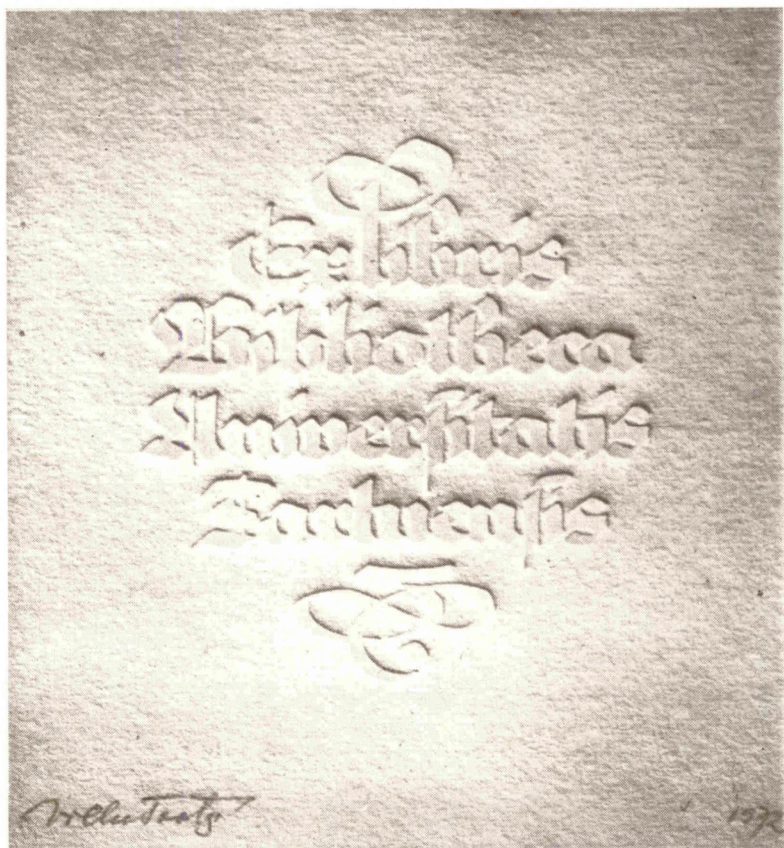 Exlibris
Bibliotheca
Universitatis
Tartuensis
Villu Toots